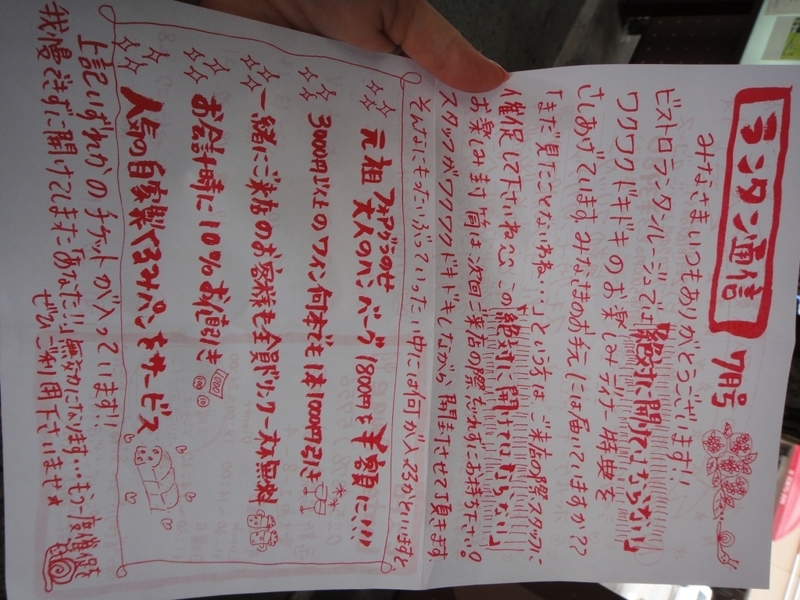 ランタン通信 7月号
みなさまいつもありがとうございます!!
ビストロランタンルージュでは「絶対に開けてはならない」
ワクワクドキドキのお楽しみディナー特典を
さしあげています みなさまのお手元には届いていますか??
「まだ見たことないわね…」という方は ご来店の際スタッフに
催促して下さいね この「絶対に開けてはならない」
お楽しみ封筒は 次回ご来店の際忘れずにお持ち下さい。
スタッフがワクワクドキドキしながら開封させて頂きます
そんなにもったいぶっていったい中には何が入ってるかといいますと
元祖フォアグラのせ大人のハンバーグ1800円を半額に!!!!
3000円以上のワイン何本でも1本1000円引き
一緒にご来店のお客様も全員ドリンク一杯無料
お会計時に10%お値引き
人気の自家製くるみパンをサービス
上記いずれかのチケットが入っています!!
我慢できずに開けてしまったあなた!!無効になります…もう一度催促を
ぜひご利用下さいませ